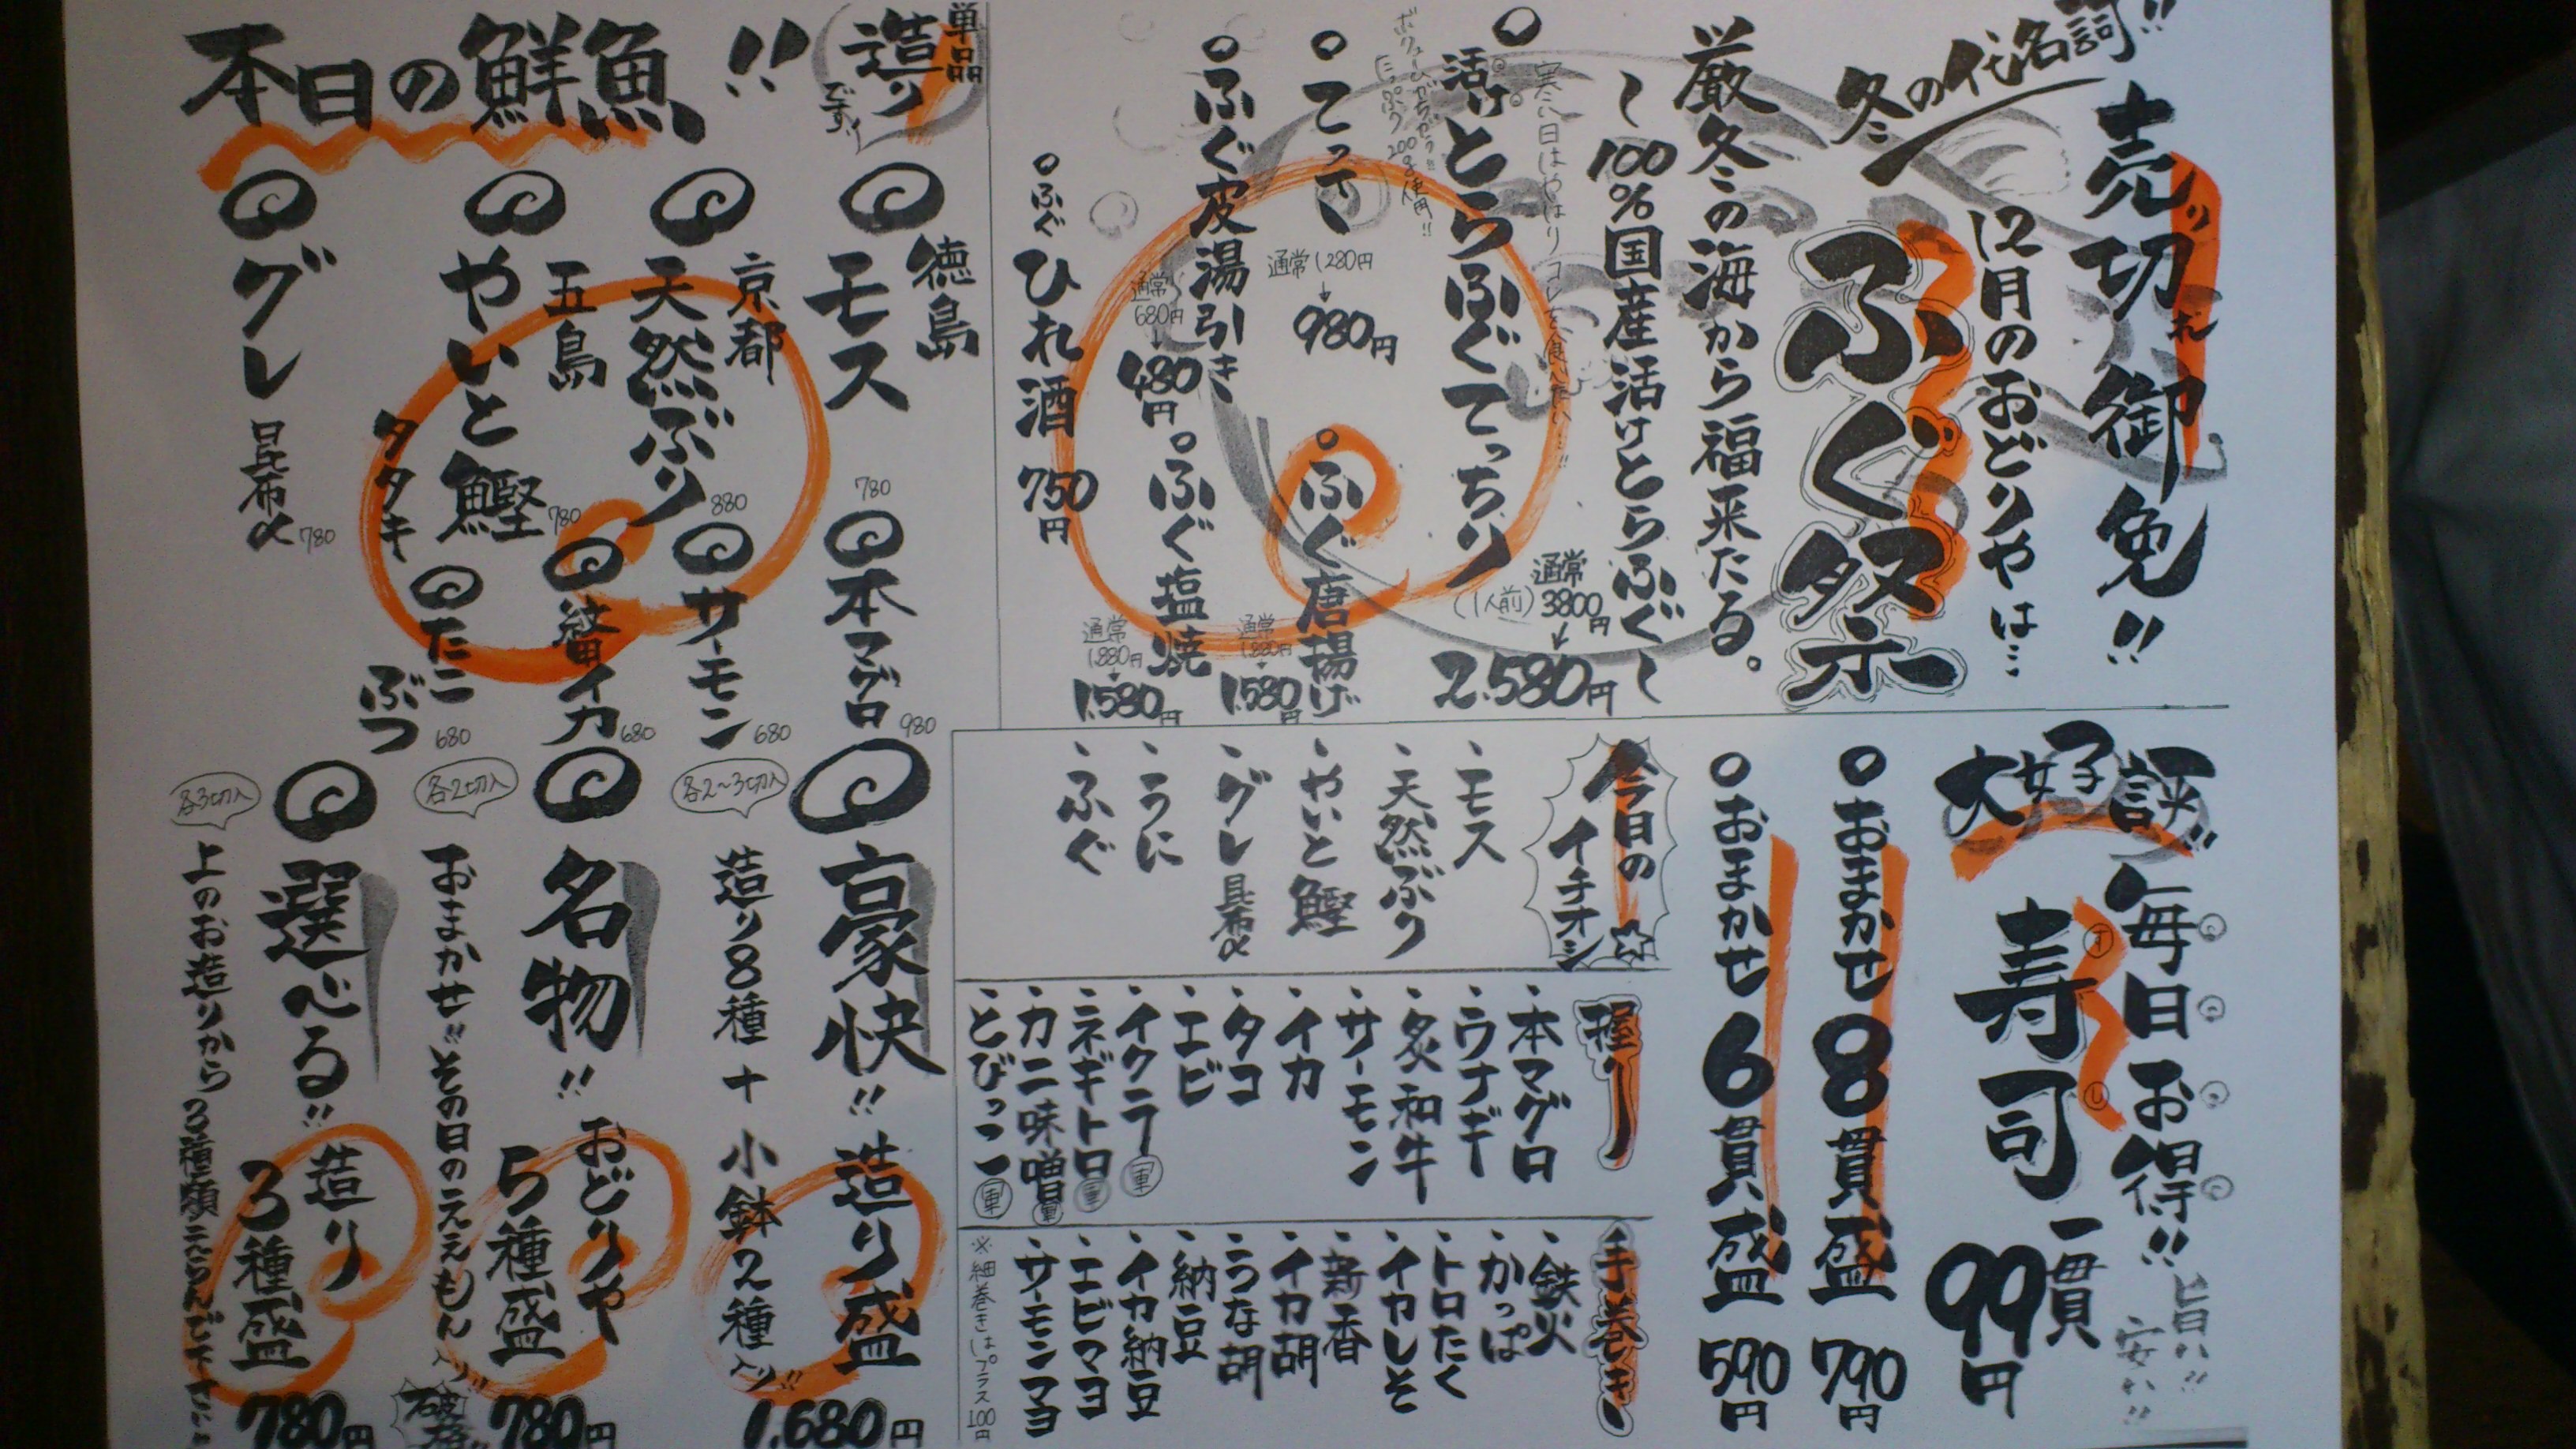 売り切れ御免!!
冬の代名詞!!
12月のおどりやは…
ふぐ祭
厳冬の海から福来たる。
〜100%国産活けとらふぐ〜
寒い日はやはりコレを食べたい…!!
○活けとらふぐてっちり
(1人前)
通常3800円
↓
2.580円
たっぷり200g使用!!
○てっさ
通常1280円
↓
980円
○ふぐ唐揚げ
通常1.880円
↓
1.580円
○ふぐ皮湯引き
通常680円
↓
480円
○ふぐ塩焼
通常1.880円
↓
1.580円
○ふぐひれ酒 750円
大好評!!
毎日お得!!
旨い!!
安い!!
寿司
ス
シ
一貫
99円
○おまかせ8貫盛 790円
○おまかせ6貫盛 590円
今日のイチオシ☆
・モス
・天然ぶり
・やいと鰹
・グレ昆布〆
・うに
・ふぐ
握り
・本マグロ
・ウナギ
・炙和牛
・サーモン
・イカ
・タコ
・エビ
・イクラ 軍
・ネギトロ 軍
・カニ味噌 軍
・とびっこ 軍
手巻き
・鉄火
・かっぱ
・トロたく
・イカしそ
・新香
・イカ胡
・うな胡
・納豆
・イカ納豆
・エビマヨ
・サーモンマヨ
※細巻きはプラス100円
本日の鮮魚!!
単品
造り
です
徳島
モス 780
京都
天然ぶり 880
五島
やいと鰹 780
タタキ
グレ昆布〆 780
本マグロ 980
サーモン 680
イカ 680
たこぶつ 680
豪快!!
造り盛
各2〜3切入
造り8種+小鉢2種入り!!
1,680円
名物!!
おどりや
5種盛
各2切入
おまかせ!!その日のええもん入り!!
780円
選べる!!
造り
3種盛
各3切入
上のお造りから3種類えらんで下さい!!
780円